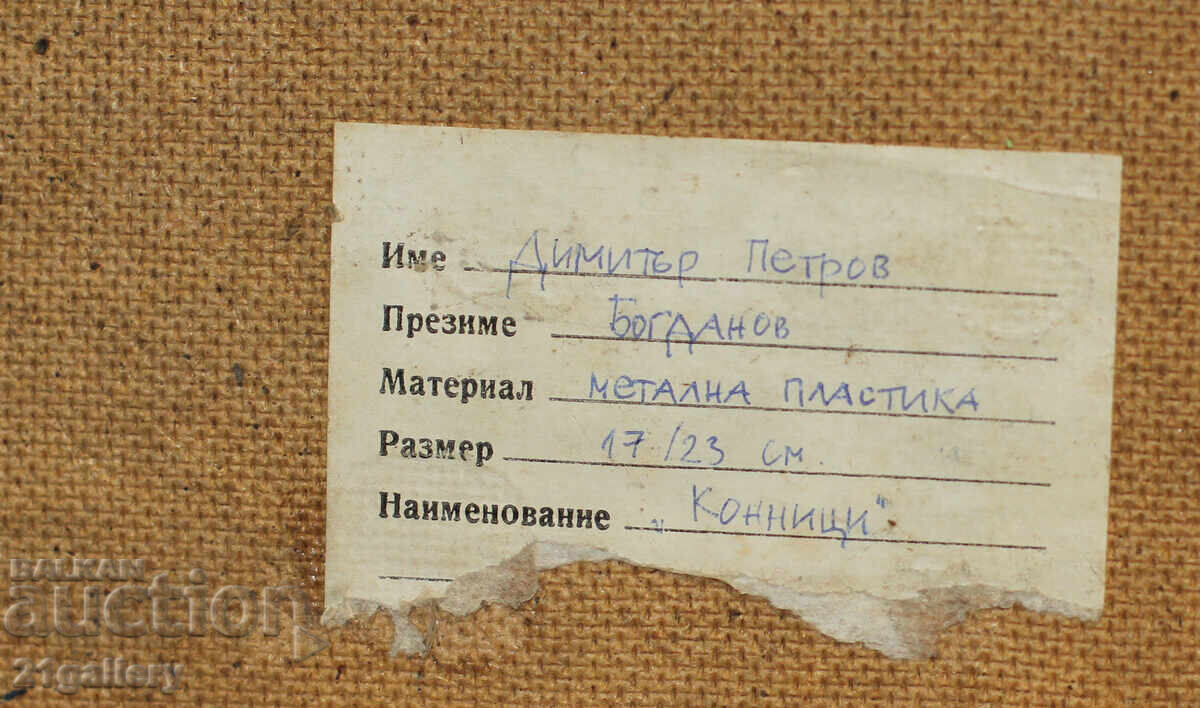 Име Димитър Петров
Презиме Богданов
Материал метална пластика
Размер 17/23 см.
Наименование „Конници"
BALKAN
auction
21gallery